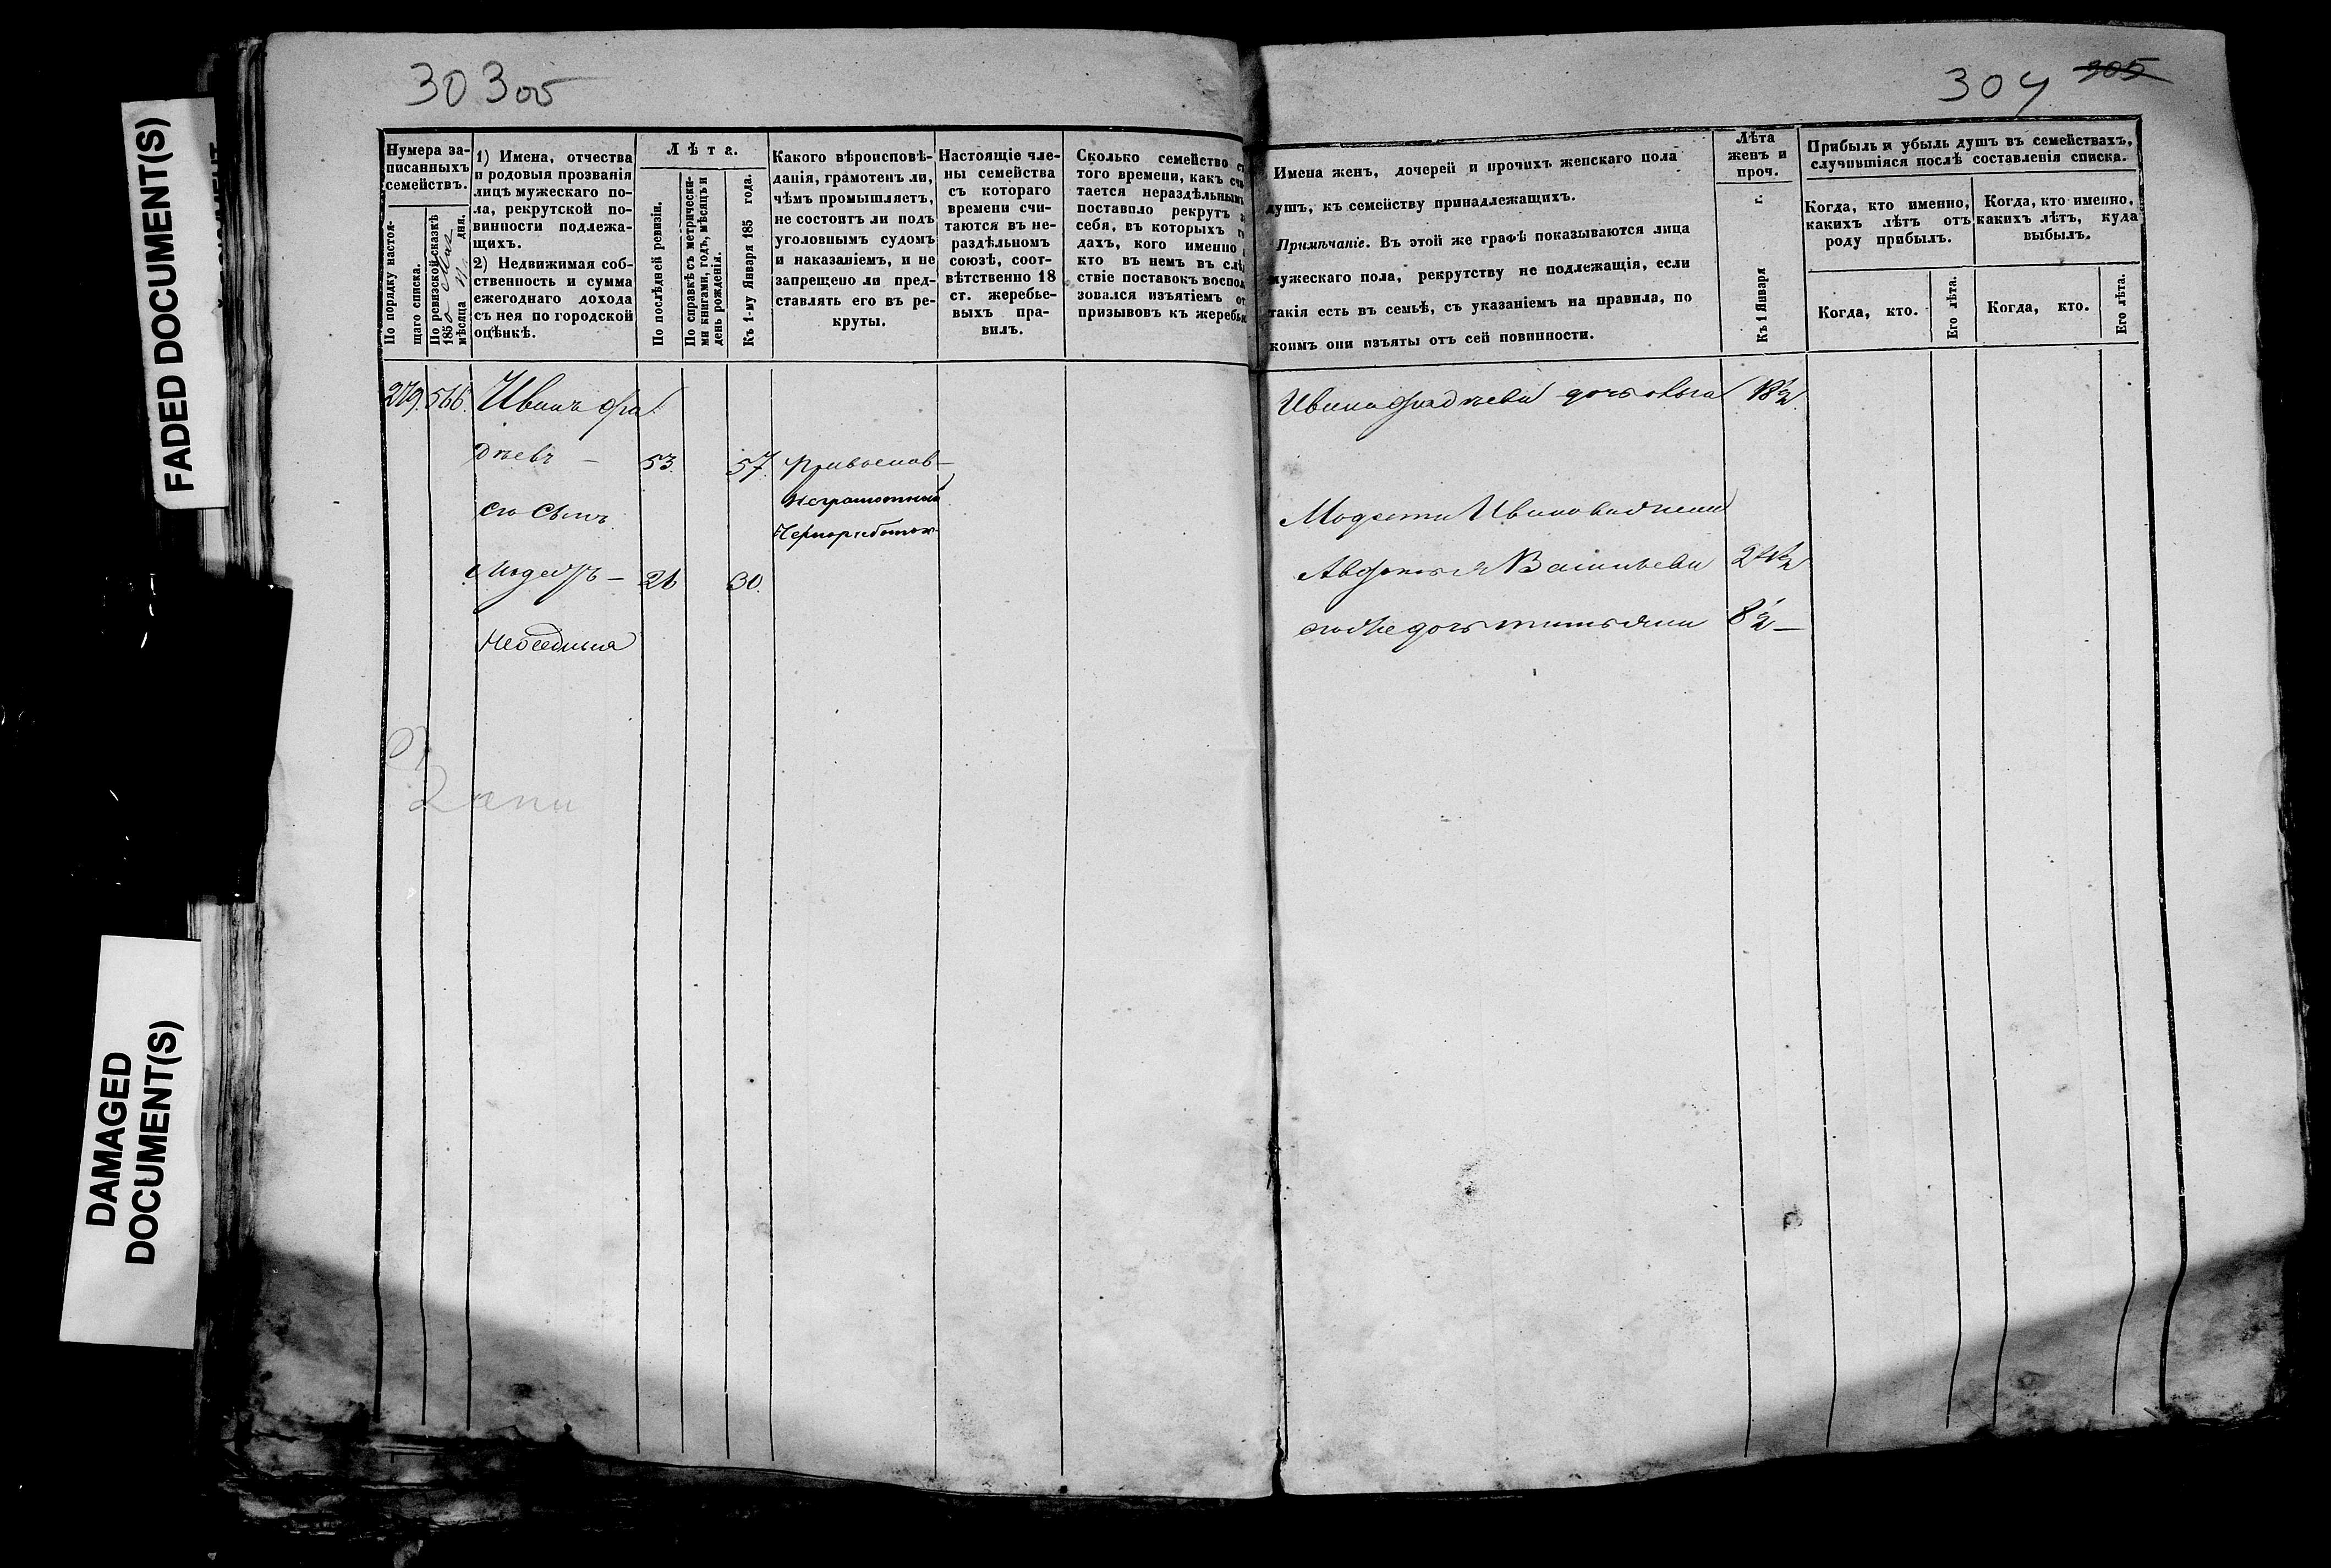 FADED DOCUMENT(S)
DAMAGED
DOCUMENT(S)
30 305
304 305
Нумера за-
писанныхъ
семействъ.
По порядку настоя-
щаго списка.
По ревизской сказкѣ
185
мѣсяца дня.
1) Имена, отчества
и родовыя прозванія
лицъ мужескаго по-
ла, рекрутской по-
винности подлежа-
щихъ.
2) Недвижимая соб-
ственность и сумма
ежегоднаго дохода
съ нея по городской
оцѣнкѣ.
Лѣта.
По послѣдней ревизіи.
По справкѣ съ метрически-
ми книгами, годъ, мѣсяцъ и
день рожденія.
Къ 1-му Января 185 года.
Какого вѣроисповѣ-
данія, грамотенъ ли,
чѣмъ промышляетъ,
не состоитъ ли подъ
уголовнымъ судомъ
и наказаніемъ, и не
запрещено ли пред-
ставлять его въ ре-
круты.
Настоящіе чле-
ны семейства
съ котораго
времени счи-
таются въ не-
раздѣльномъ
союзѣ, соот-
вѣтственно 18
ст. жеребье-
выхъ пра-
вилъ.
Сколько семейство съ
того времени, какъ счи
тается нераздѣльнымъ
поставило рекрутъ з
себя, въ которыхъ го
дахъ, кого именно и
кто въ немъ въ слѣ
ствіе поставокъ воспол
зовался изъятіемъ от
призывовъ къ жеребью
Имена женъ, дочерей и прочихъ женскаго пола
душъ, къ семейству принадлежащихъ.
Примѣчаніе. Въ этой же графѣ показываются лица
мужескаго пола, рекрутству не подлежащія, если
такія есть въ семьѣ, съ указаніемъ на правила, по
коимъ они изъяты отъ сей повинности.
Лѣта
женъ и
проч.
Къ 1 Января г.
Прибыль и убыль душъ въ семействахъ,
случившіяся послѣ составленія списка.
Когда, кто именно,
какихъ лѣтъ отъ
роду прибылъ.
Когда, кто именно,
какихъ лѣтъ, куда
выбылъ.
Когда, кто.
Его лѣта.
Когда, кто.
Его лѣта.
279. 566. Иванъ Фад
дѣевъ — 53. 57.
неграмотный
его сынъ
Чернорабочій
Модестъ — 26 30.
Ивана Фаддѣева дочь Ольга 18½
Модеста Иванова жена
Васильева 24½
его же дочь Татьяна 8½ —